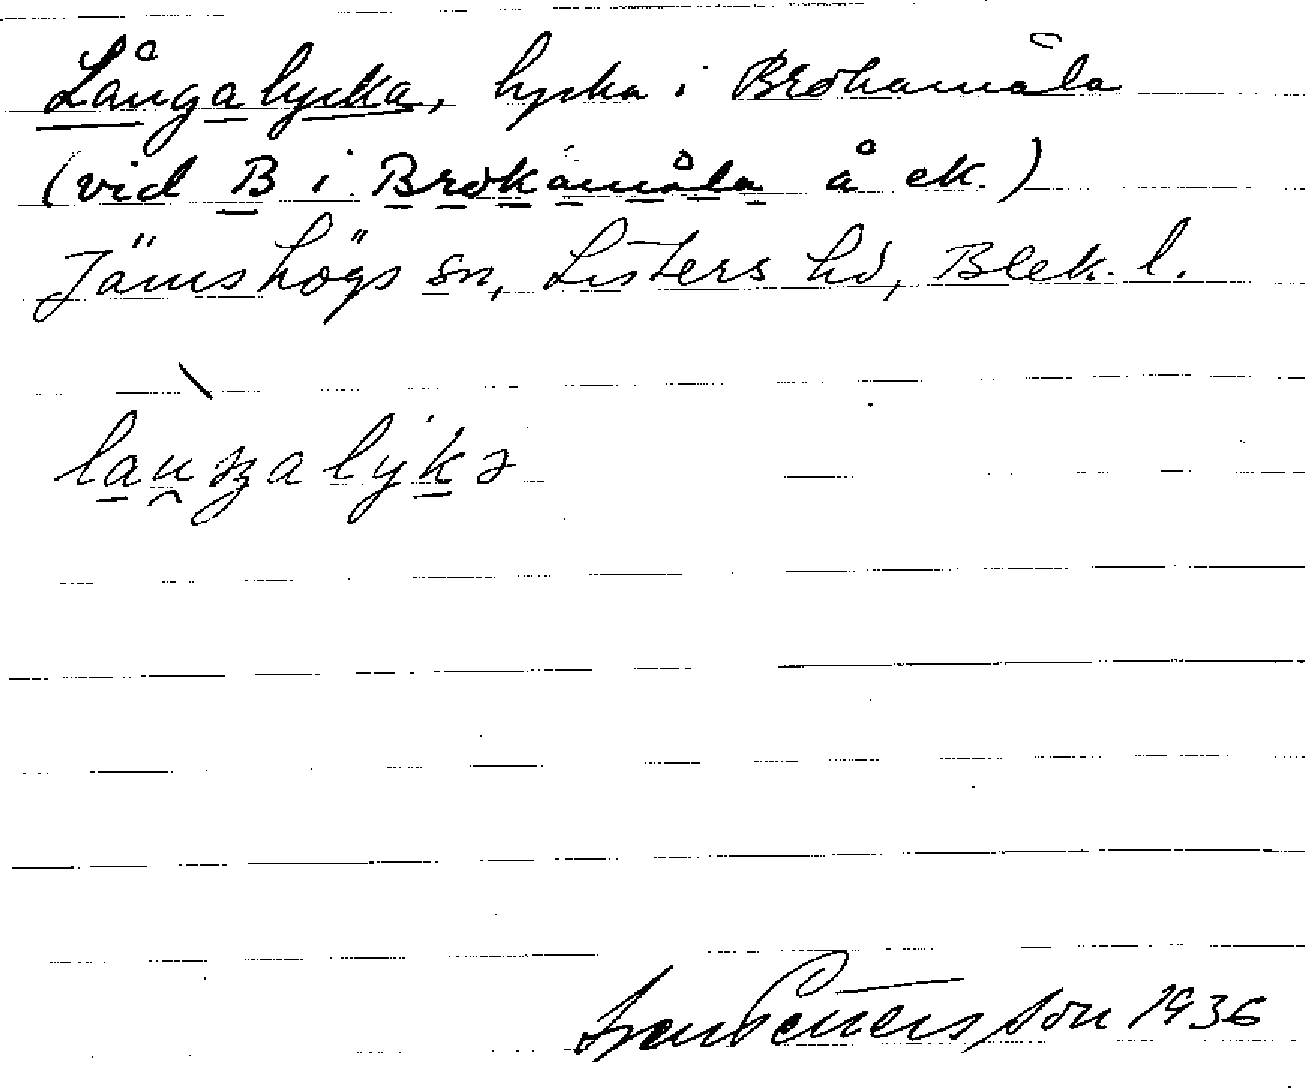 Långalycka, lycka i Brokamåla
(vid B i Brokamåla å ek.)
Jämshögs sn, Listers hd, Blek. l.
lauŋalykə
Pettersson 1936